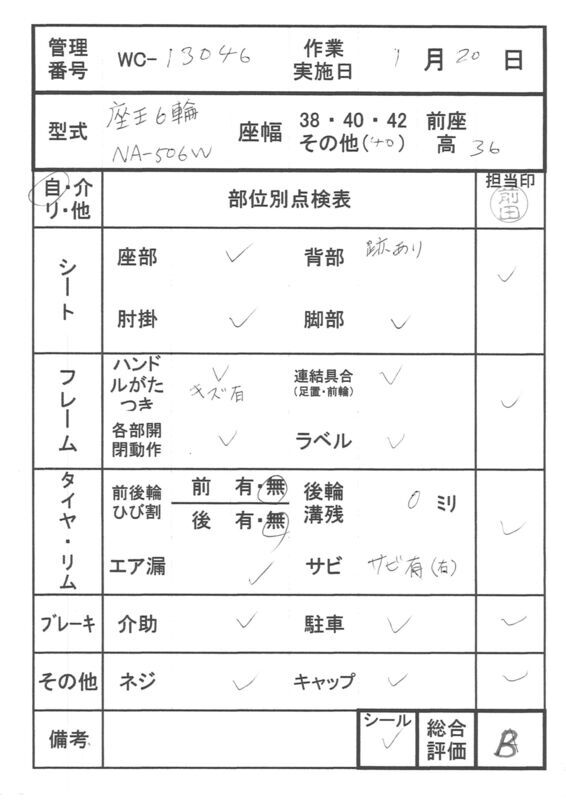 管理番号 WC-13046 作業実施日 1月20日
型式 座王6輪 NA-506W 座幅 38・40・42 その他(40) 前座高 36
自・介 リ・他 部位別点検表 担当印 前田
シート 座部 ✓ 背部 跡あり ✓
肘掛 ✓ 脚部 ✓
フレーム ハンドルがたつき ✓ キズ有 連結具合 (足置・前輪) ✓ ✓
各部開閉動作 ✓ ラベル ✓
タイヤ・リム 前後輪ひび割 前 有・無 後輪溝残 0 ミリ ✓
後 有・無
エア漏 ✓ サビ サビ有(右)
ブレーキ 介助 ✓ 駐車 ✓ ✓
その他 ネジ ✓ キャップ ✓ ✓
備考 シール ✓ 総合評価 B